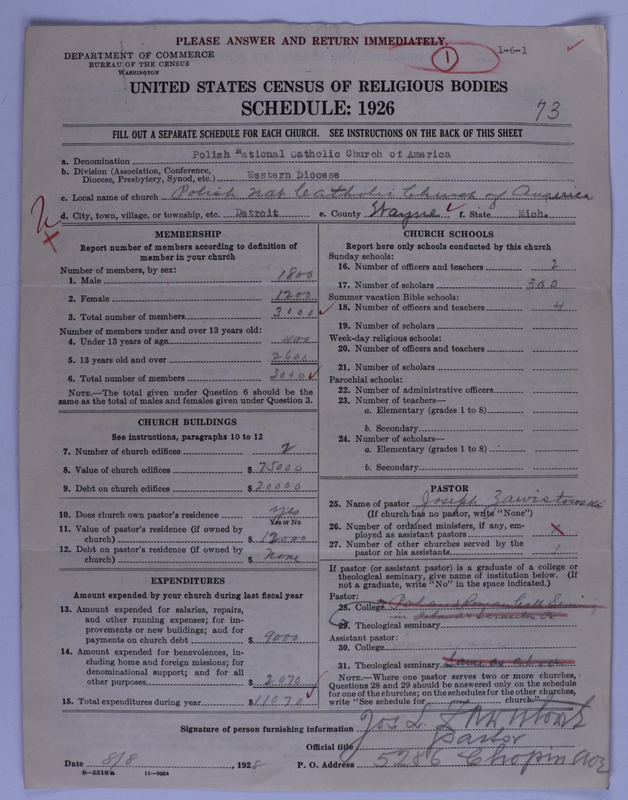 PLEASE ANSWER AND RETURN IMMEDIATELY.
1
1-6-1
DEPARTMENT OF COMMERCE
BUREAU OF THE CENSUS
WASHINGTON
UNITED STATES CENSUS OF RELIGIOUS BODIES
SCHEDULE: 1926
73
FILL OUT A SEPARATE SCHEDULE FOR EACH CHURCH. SEE INSTRUCTIONS ON THE BACK OF THIS SHEET
a. Denomination Polish National Catholic Church of America
b. Division (Association, Conference,
Diocese, Presbytery, Synod, etc.) Western Diocese
c. Local name of church Polish Nat Catholic Church of America
d. City, town, village, or township, etc. Detroit e. County Wayne f. State Mich.
MEMBERSHIP
Report number of members according to definition of
member in your church
Number of members, by sex:
1. Male 1800
2. Female 1200
3. Total number of members 3000
Number of members under and over 13 years old:
4. Under 13 years of age 400
5. 13 years old and over 2600
6. Total number of members 3000
NOTE.—The total given under Question 6 should be the
same as the total of males and females given under Question 3.
CHURCH BUILDINGS
See instructions, paragraphs 10 to 12
7. Number of church edifices 2
8. Value of church edifices $ 75000
9. Debt on church edifices $ 20000
10. Does church own pastor's residence yes
Yes or No
11. Value of pastor's residence (if owned by
church) $ 12000
12. Debt on pastor's residence (if owned by
church) $ none
EXPENDITURES
Amount expended by your church during last fiscal year
13. Amount expended for salaries, repairs,
and other running expenses; for im-
provements or new buildings; and for
payments on church debt $ 9000
14. Amount expended for benevolences, in-
cluding home and foreign missions; for
denominational support; and for all
other purposes $ 2070
15. Total expenditures during year $ 11070
CHURCH SCHOOLS
Report here only schools conducted by this church
Sunday schools:
16. Number of officers and teachers 2
17. Number of scholars 300
Summer vacation Bible schools:
18. Number of officers and teachers 4
19. Number of scholars
Week-day religious schools:
20. Number of officers and teachers
21. Number of scholars
Parochial schools:
22. Number of administrative officers
23. Number of teachers—
a. Elementary (grades 1 to 8)
b. Secondary
24. Number of scholars—
a. Elementary (grades 1 to 8)
b. Secondary
PASTOR
25. Name of pastor Joseph Zawistowski
(If church has no pastor, write "None")
26. Number of ordained ministers, if any, em-
ployed as assistant pastors x
27. Number of other churches served by the
pastor or his assistants 1
If pastor (or assistant pastor) is a graduate of a college or
theological seminary, give name of institution below. (If
not a graduate, write "No" in the space indicated.)
Pastor:
28. College
29. Theological seminary
Assistant pastor:
30. College
31. Theological seminary Same as above
NOTE.—Where one pastor serves two or more churches,
Questions 28 and 29 should be answered only on the schedule
for one of the churches; on the schedules for the other churches,
write "See schedule for church."
Signature of person furnishing information Jos L
Official title Pastor
Date 8/8, 1928 P. O. Address 5286 Chopin
8-5518a 11-9054